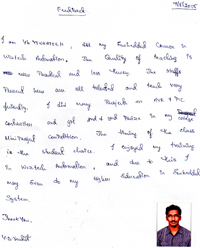 Feedback
I am V.S. , did my Embedded Course in
Wiztech Automation. The Quality of teaching is
more Practical and less theory. The Staffs
Present here are all talented and teach very
friendly. I did many Projects in AVR & PIC
Controllers and got and Prize in my college
Mini Project competition. The timing of the class
is the student choice. I enjoyed my training
in Wiztech Automation, and due to this I
may soon do my Higher Education in Embedded
System.
Thank You.